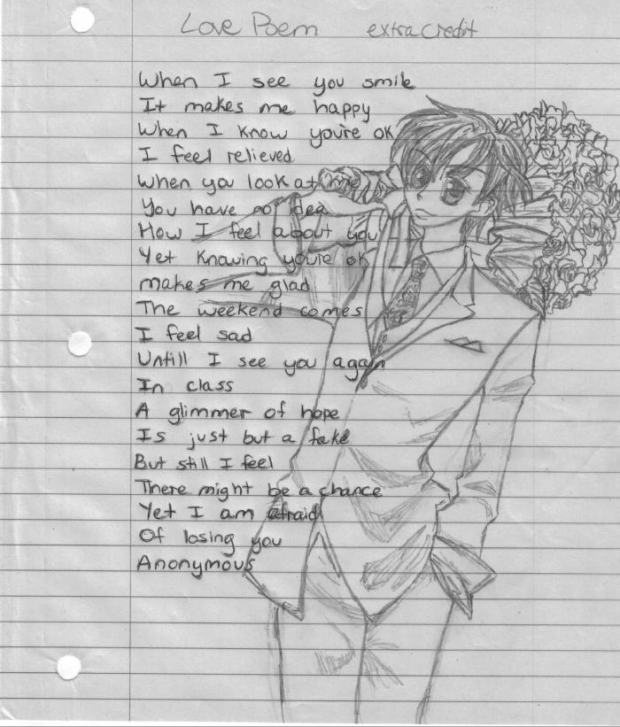 Love Poem extra credit
When I see you smile
It makes me happy
When I know you're ok
I feel relieved
When you look at me
You have no idea
How I feel about you
Yet knowing you're ok
makes me glad
The weekend comes
I feel sad
Untill I see you again
In class
A glimmer of hope
Is just but a fake
But still I feel
There might be a chance
Yet I am afraid
Of losing you
Anonymous